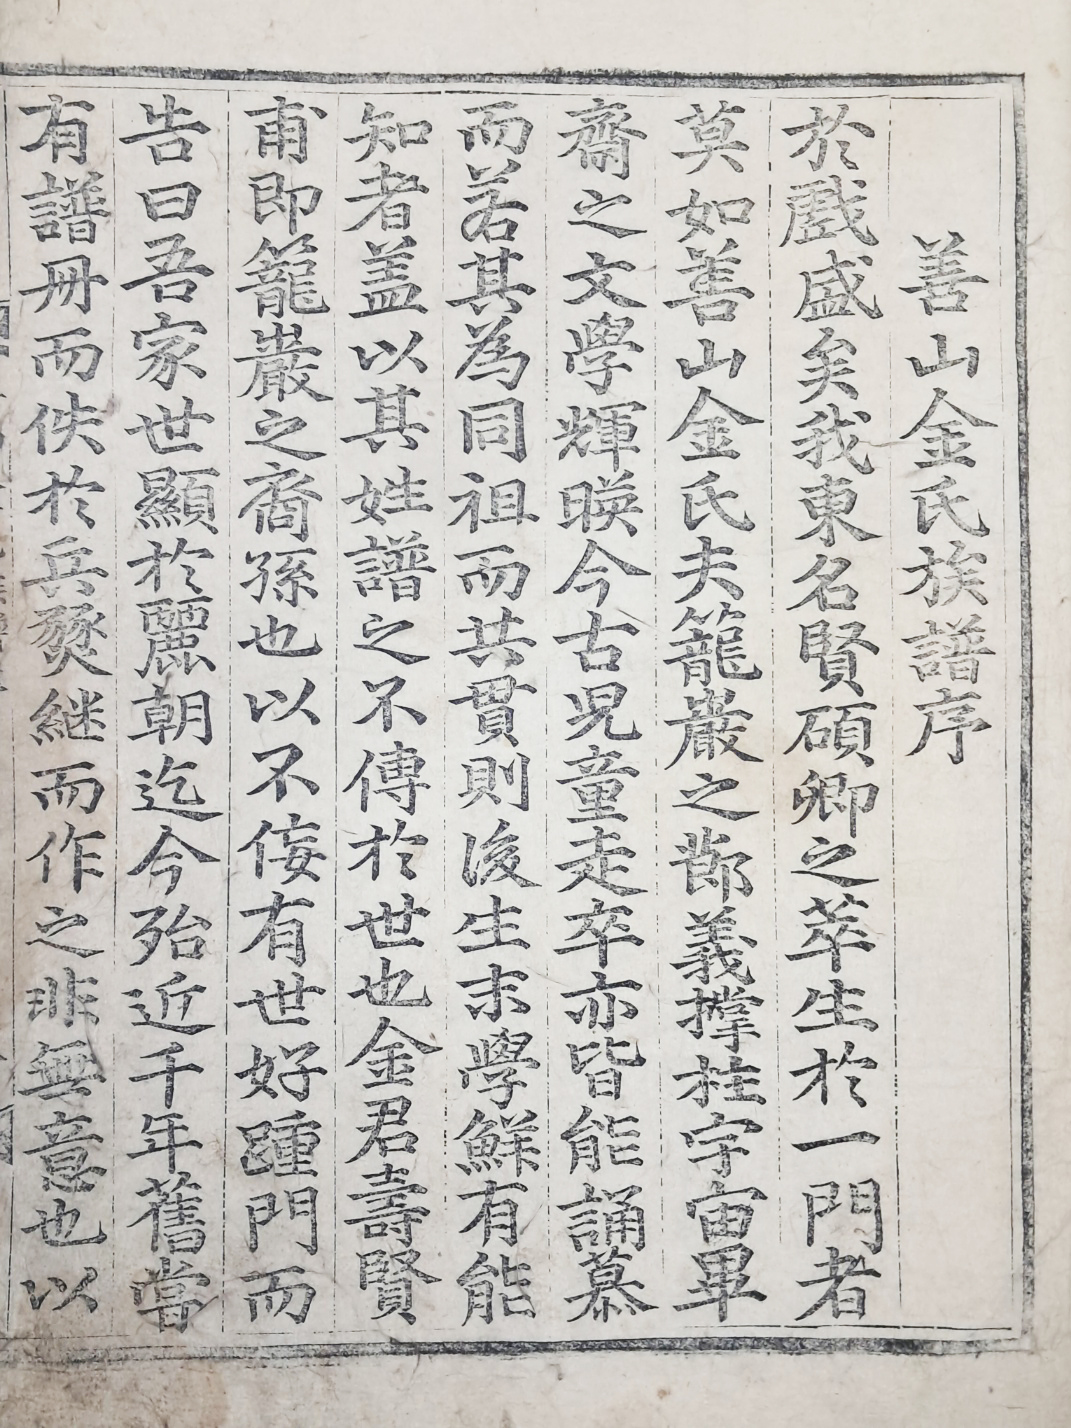 善山金氏族譜序
於戲盛矣我東名賢碩卿之萃生於一門者
莫如善山金氏夫籠巖之節義撑柱宇宙畢
齋之文學輝暎今古児童走卒亦皆能誦慕
而若其為同祖而共貫則後生末學鮮有能
知者盖以其姓譜之不傳於世也金君壽賢
甫即籠巖之裔孫也以不侫有世好踵門而
告曰吾家世顯於麗朝迄今殆近千年舊嘗
有譜冊而佚於兵燹継而作之非無意也以